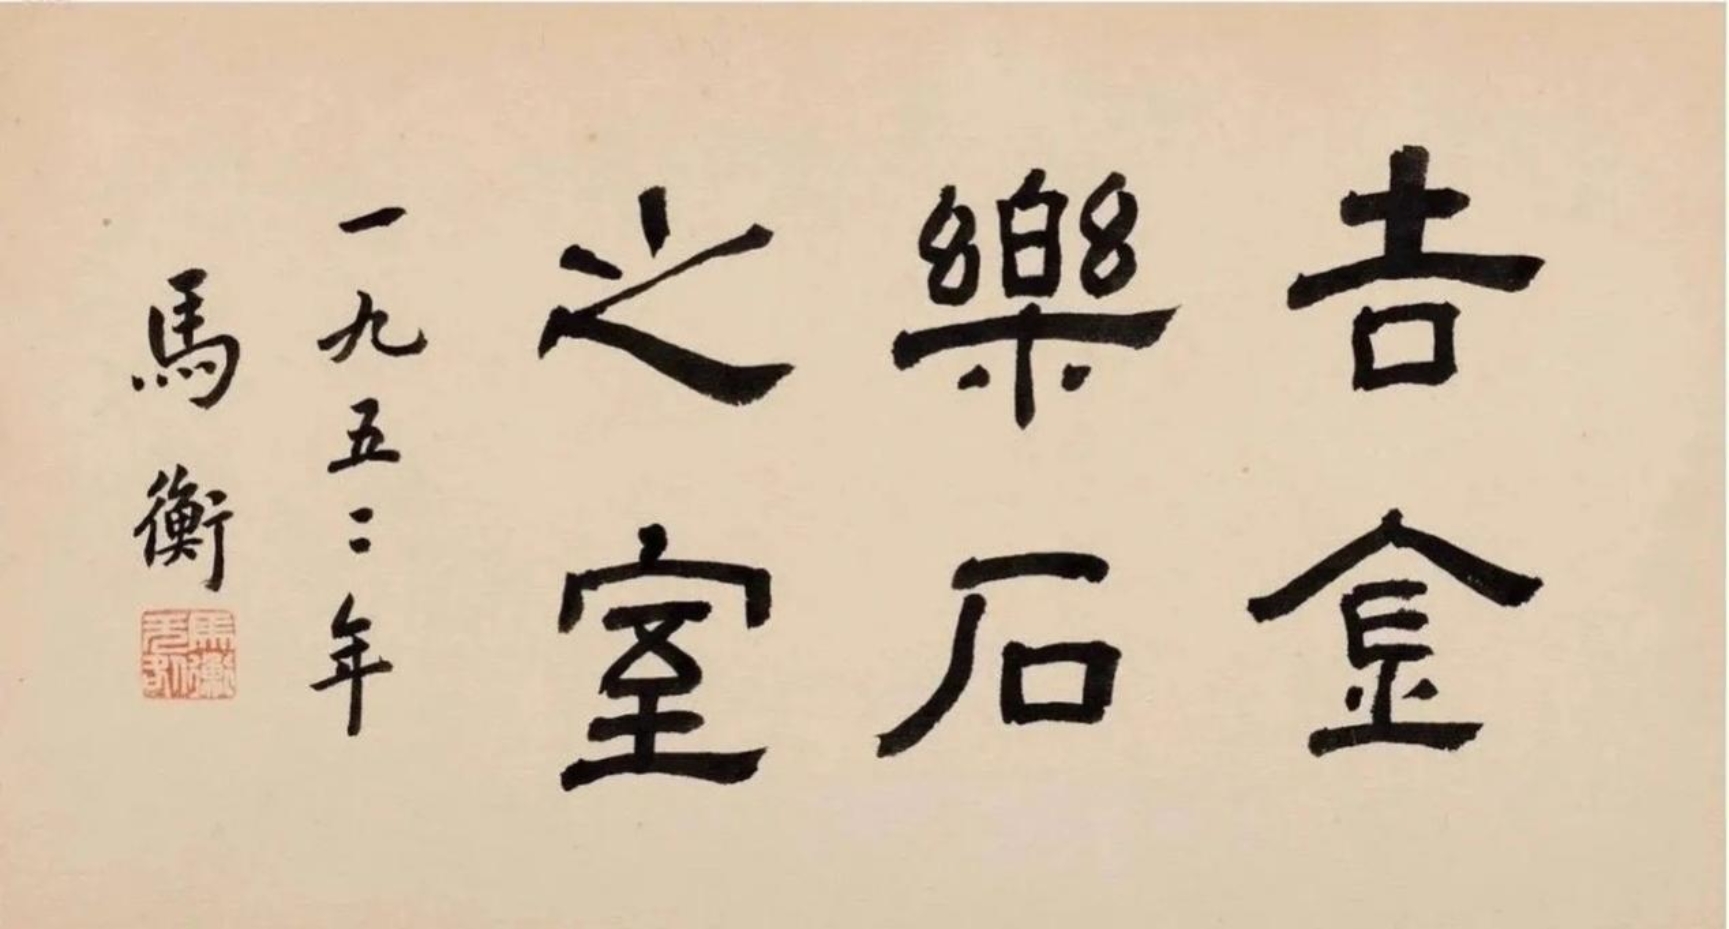 吉金
樂石
之室
一九五二年
馬衡
馬衡